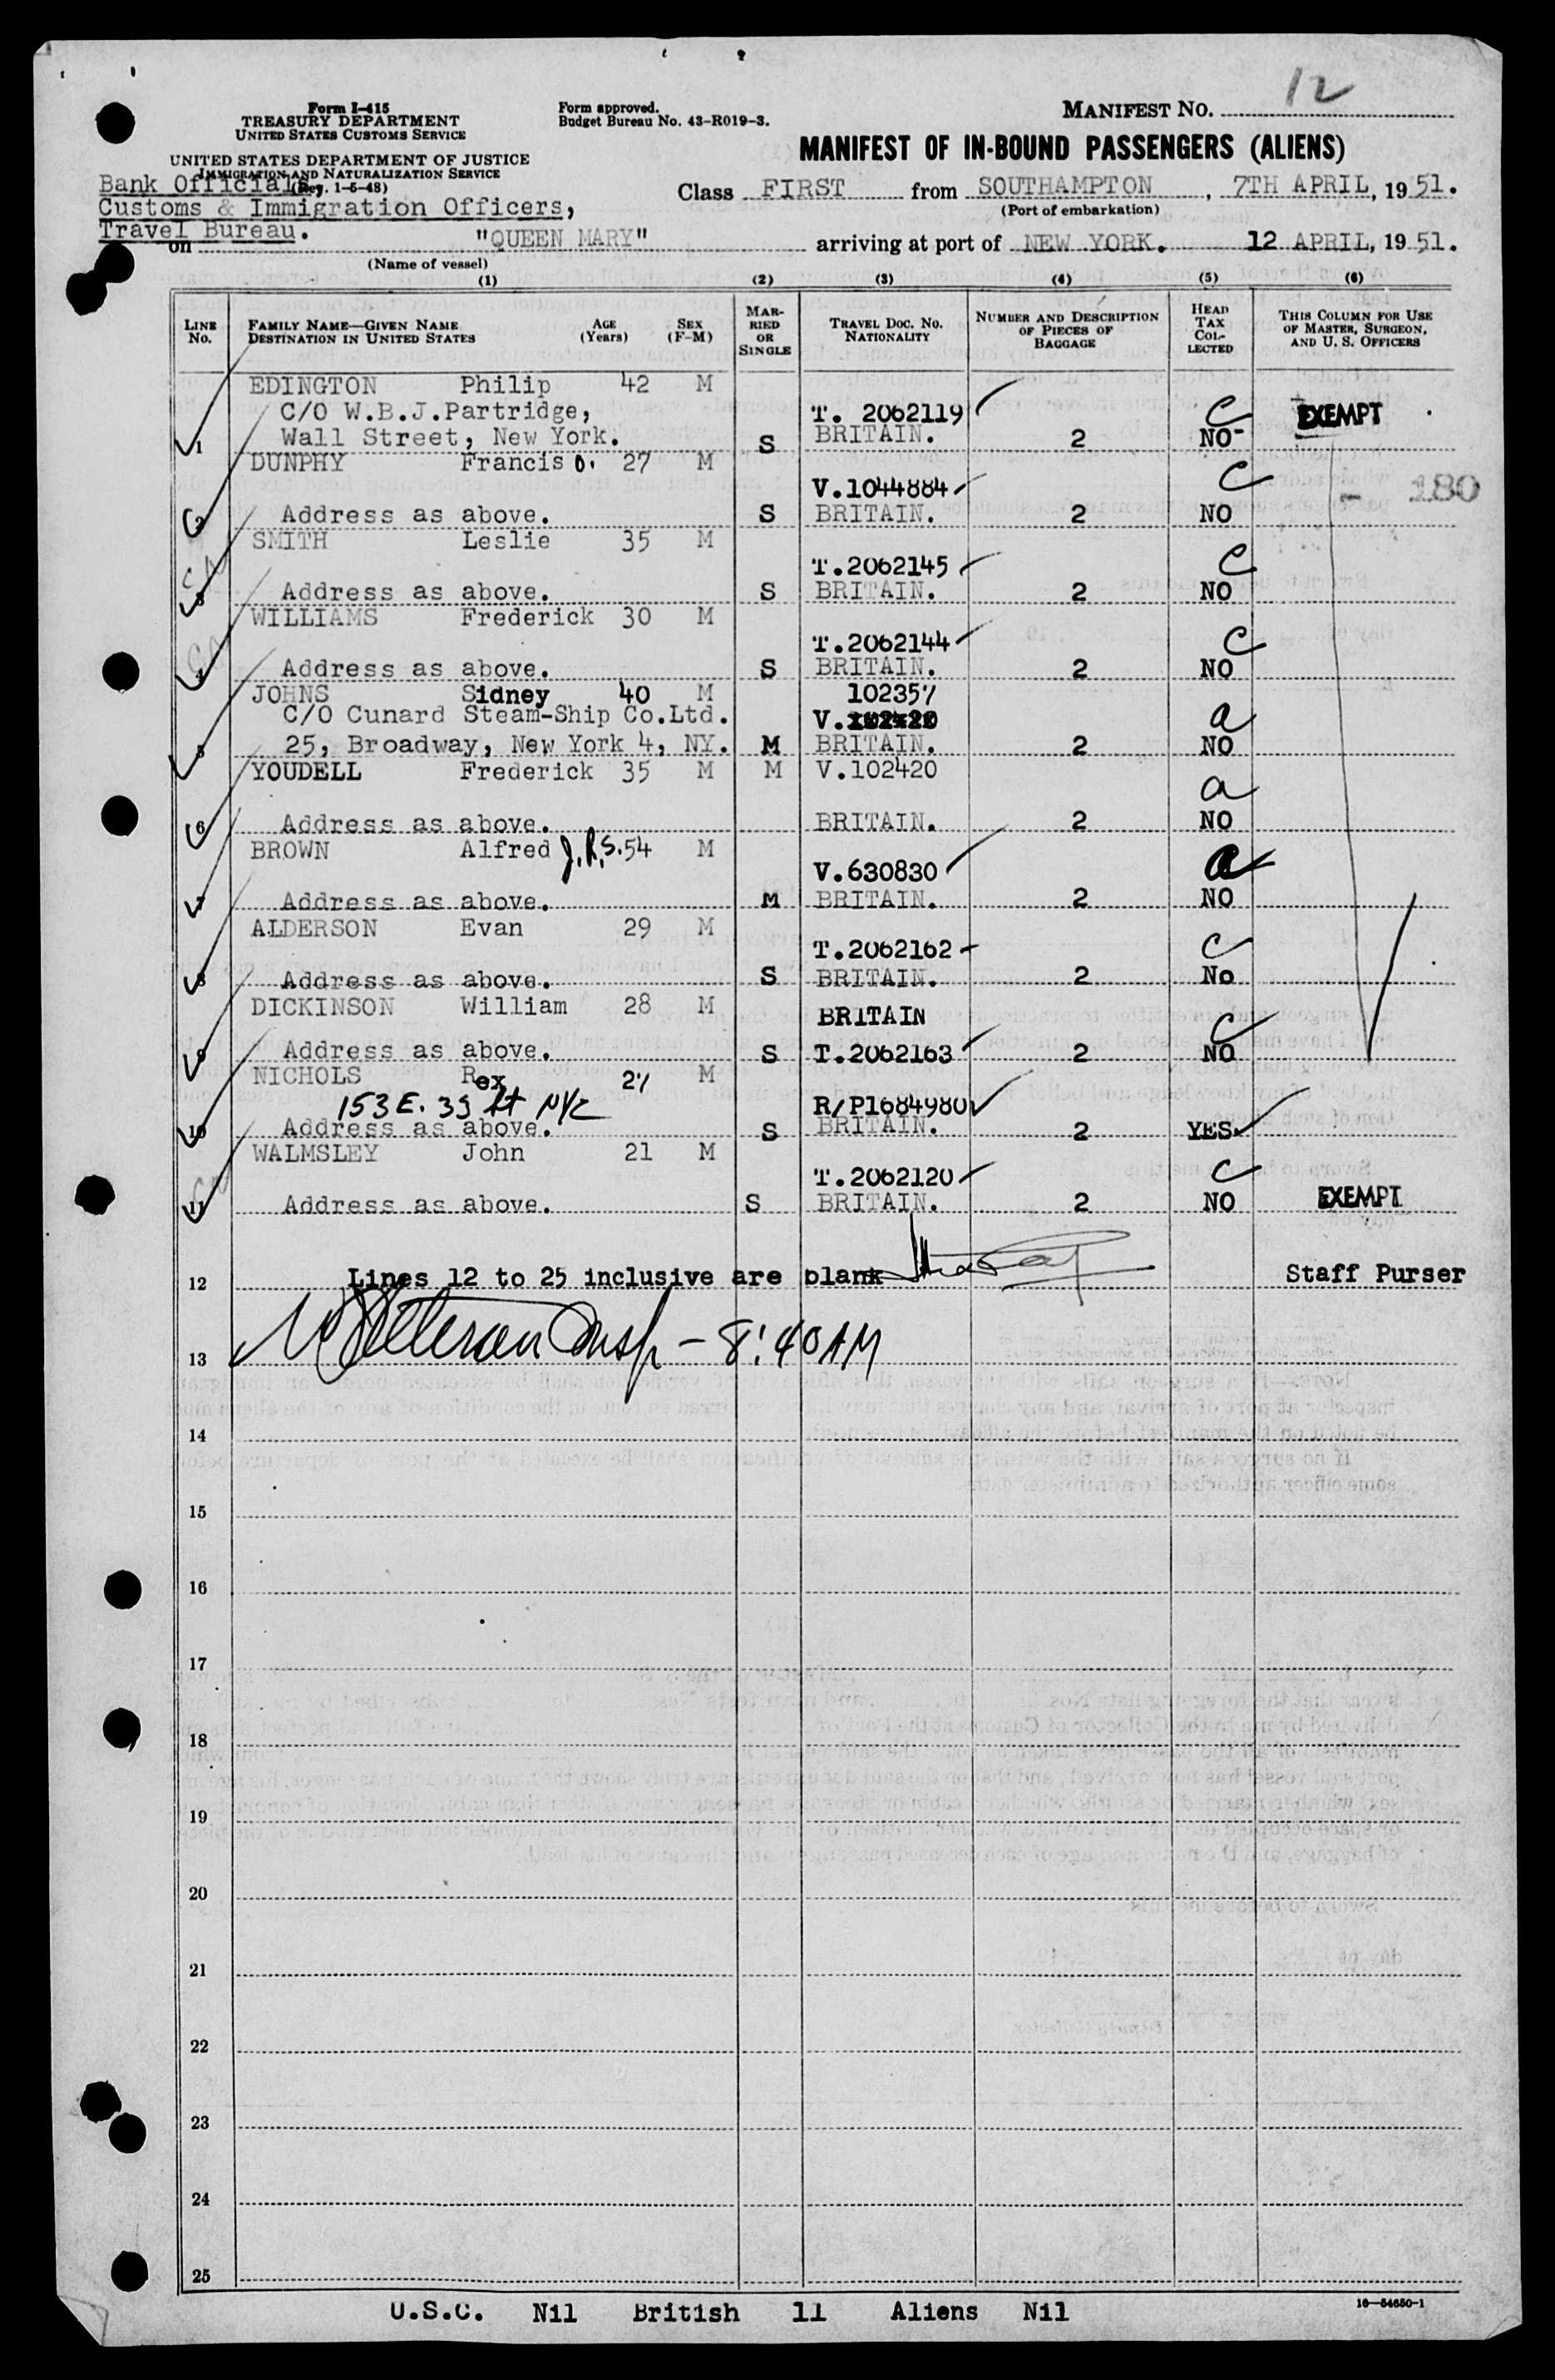 12
Form I-415
TREASURY DEPARTMENT
UNITED STATES CUSTOMS SERVICE
Form approved.
Budget Bureau No. 43-R019-3.
MANIFEST NO.
UNITED STATES DEPARTMENT OF JUSTICE
IMMIGRATION AND NATURALIZATION SERVICE
(Rev. 1-5-48)
MANIFEST OF IN-BOUND PASSENGERS (ALIENS)
Bank Officials,
Customs & Immigration Officers,
Travel Bureau.
Class FIRST from SOUTHAMPTON, 7TH APRIL, 1951.
(Port of embarkation)
on "QUEEN MARY" arriving at port of NEW YORK. 12 APRIL, 1951.
(Name of vessel)
(1) (2) (3) (4) (5) (6)
LINE No. FAMILY NAME—GIVEN NAME DESTINATION IN UNITED STATES AGE (Years) SEX (F-M) MARRIED OR SINGLE TRAVEL DOC. NO. NATIONALITY NUMBER AND DESCRIPTION OF PIECES OF BAGGAGE HEAD TAX COLLECTED THIS COLUMN FOR USE OF MASTER, SURGEON, AND U. S. OFFICERS
EDINGTON Philip 42 M
C/O W.B.J.Partridge, T. 2062119 C EXEMPT
1 Wall Street, New York. S BRITAIN. 2 NO-
DUNPHY Francis O. 27 M
V.1044884 C - 180
2 Address as above. S BRITAIN. 2 NO
SMITH Leslie 35 M
T.2062145 C
3 Address as above. S BRITAIN. 2 NO
WILLIAMS Frederick 30 M
T.2062144 C
4 Address as above. S BRITAIN. 2 NO
JOHNS Sidney 40 M 102357
C/O Cunard Steam-Ship Co.Ltd. V. a
5 25, Broadway, New York 4, NY. M BRITAIN. 2 NO
YOUDELL Frederick 35 M M V.102420
a
6 Address as above. BRITAIN. 2 NO
BROWN Alfred J.R.S. 54 M
V.630830 a
7 Address as above. M BRITAIN. 2 NO
ALDERSON Evan 29 M
T.2062162 C
8 Address as above. S BRITAIN. 2 No
DICKINSON William 28 M BRITAIN
C
9 Address as above. S T.2062163 2 NO
NICHOLS Rex 27 M
153 E. 33 St NYC R/P1684980
10 Address as above. S BRITAIN. 2 YES
WALMSLEY John 21 M
T.2062120 C
11 Address as above. S BRITAIN. 2 NO EXEMPT
12 Lines 12 to 25 inclusive are blank Staff Purser
13 Insp - 8:40 AM
14
15
16
17
18
19
20
21
22
23
24
25
U.S.C. Nil British 11 Aliens Nil
16—54650-1